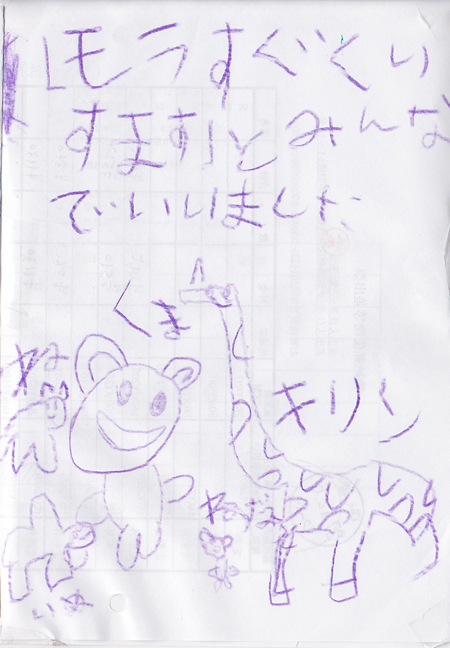 「モうすぐくい
すます」とみんな
でいいました
くま
ねこ
キリン
ねずみ
いぬ